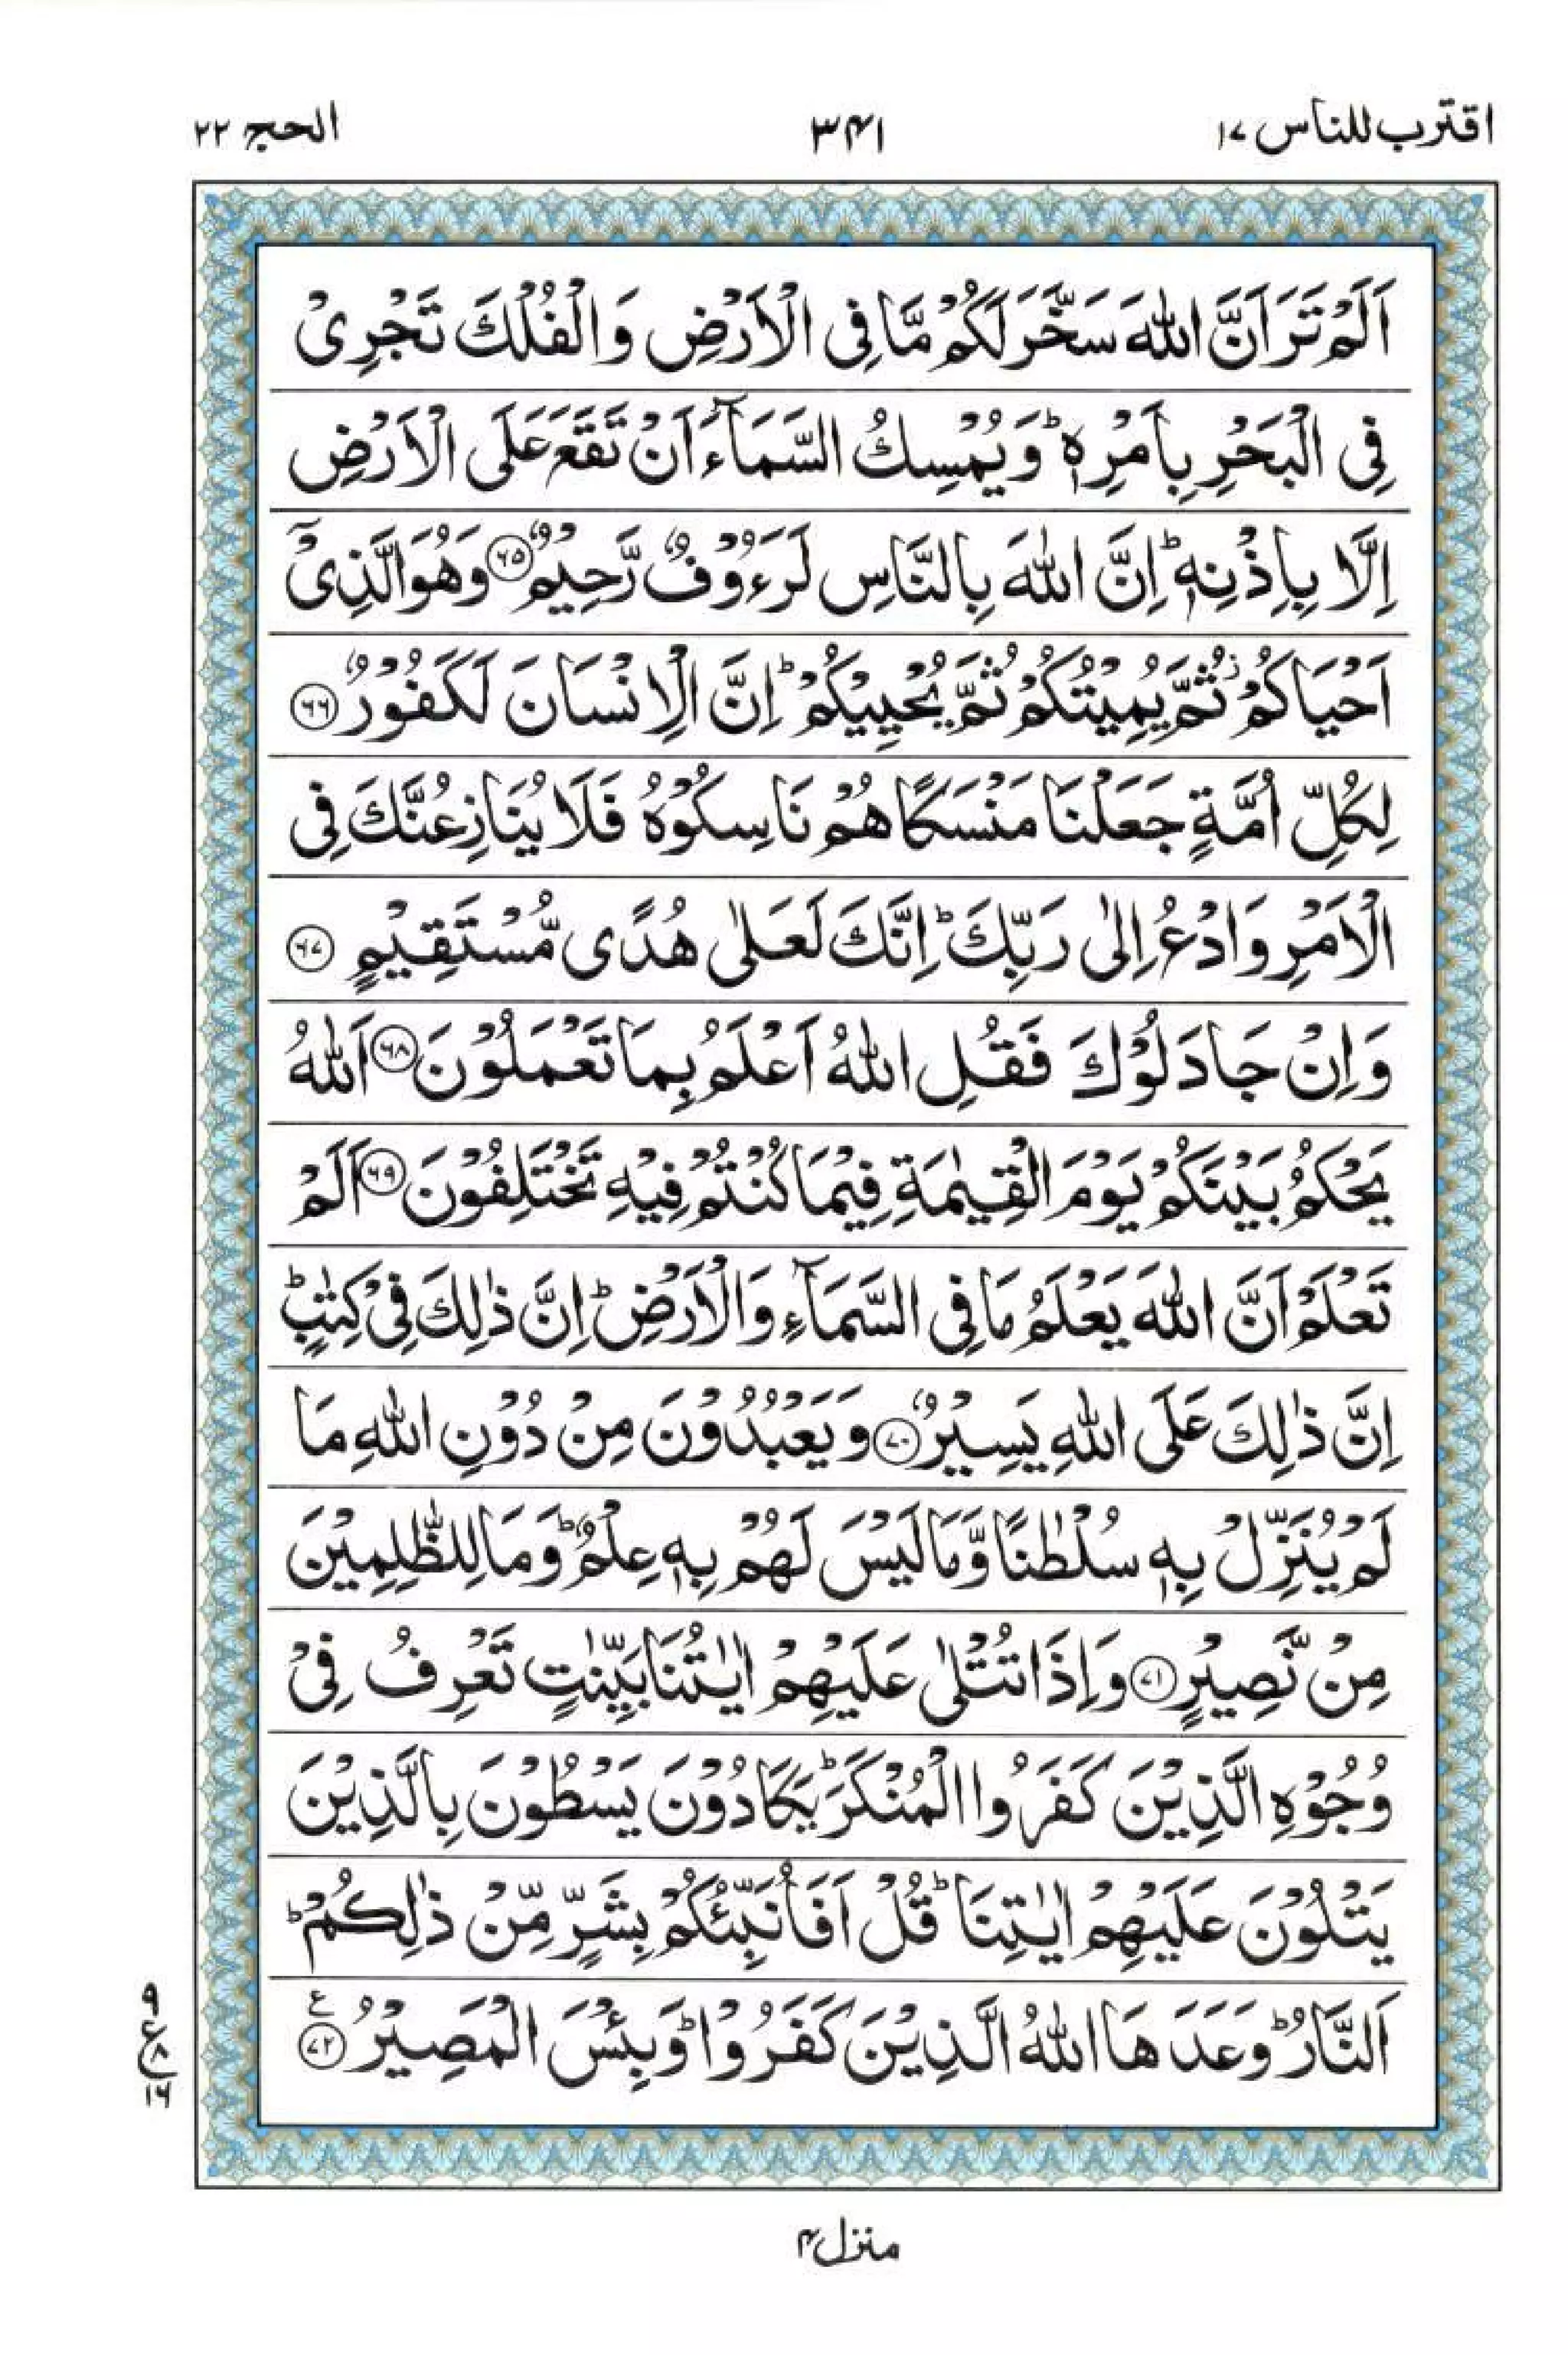 اقترب للناس ١٧
٣٤١
الحج ٢٢
اَلَمْ تَرَ اَنَّ اللّٰهَ سَخَّرَ لَكُمْ مَّا فِی الْاَرْضِ وَالْفُلْكَ تَجْرِیْ
فِی الْبَحْرِ بِاَمْرِهٖ ؕ وَ یُمْسِكُ السَّمَآءَ اَنْ تَقَعَ عَلَی الْاَرْضِ
اِلَّا بِاِذْنِهٖ ؕ اِنَّ اللّٰهَ بِالنَّاسِ لَرَءُوْفٌ رَّحِیْمٌ ﴿۶۵﴾ وَهُوَ الَّذِیْۤ
اَحْیَاكُمْ ؗ ثُمَّ یُمِیْتُكُمْ ثُمَّ یُحْیِیْكُمْ ؕ اِنَّ الْاِنْسَانَ لَكَفُوْرٌ ﴿۶۶﴾
لِكُلِّ اُمَّةٍ جَعَلْنَا مَنْسَكًا هُمْ نَاسِكُوْهُ فَلَا یُنَازِعُنَّكَ فِی
الْاَمْرِ وَادْعُ اِلٰی رَبِّكَ ؕ اِنَّكَ لَعَلٰی هُدًی مُّسْتَقِیْمٍ ﴿۶۷﴾
وَ اِنْ جَادَلُوْكَ فَقُلِ اللّٰهُ اَعْلَمُ بِمَا تَعْمَلُوْنَ ﴿۶۸﴾ اَللّٰهُ
یَحْكُمُ بَیْنَكُمْ یَوْمَ الْقِیٰمَةِ فِیْمَا كُنْتُمْ فِیْهِ تَخْتَلِفُوْنَ ﴿۶۹﴾ اَلَمْ
تَعْلَمْ اَنَّ اللّٰهَ یَعْلَمُ مَا فِی السَّمَآءِ وَالْاَرْضِ ؕ اِنَّ ذٰلِكَ فِیْ كِتٰبٍ ؕ
اِنَّ ذٰلِكَ عَلَی اللّٰهِ یَسِیْرٌ ﴿۷۰﴾ وَ یَعْبُدُوْنَ مِنْ دُوْنِ اللّٰهِ مَا
لَمْ یُنَزِّلْ بِهٖ سُلْطٰنًا وَّمَا لَیْسَ لَهُمْ بِهٖ عِلْمٌ ؕ وَمَا لِلظّٰلِمِیْنَ
مِنْ نَّصِیْرٍ ﴿۷۱﴾ وَ اِذَا تُتْلٰی عَلَیْهِمْ اٰیٰتُنَا بَیِّنٰتٍ تَعْرِفُ فِیْ
وُجُوْهِ الَّذِیْنَ كَفَرُوا الْمُنْكَرَ ؕ یَكَادُوْنَ یَسْطُوْنَ بِالَّذِیْنَ
یَتْلُوْنَ عَلَیْهِمْ اٰیٰتِنَا ؕ قُلْ اَفَاُنَبِّئُكُمْ بِشَرٍّ مِّنْ ذٰلِكُمْ ؕ
اَلنَّارُ ؕ وَعَدَهَا اللّٰهُ الَّذِیْنَ كَفَرُوْا ؕ وَبِئْسَ الْمَصِیْرُ ﴿۷۲﴾ ع
۹
ع ۸
۱۶
منزل ۴